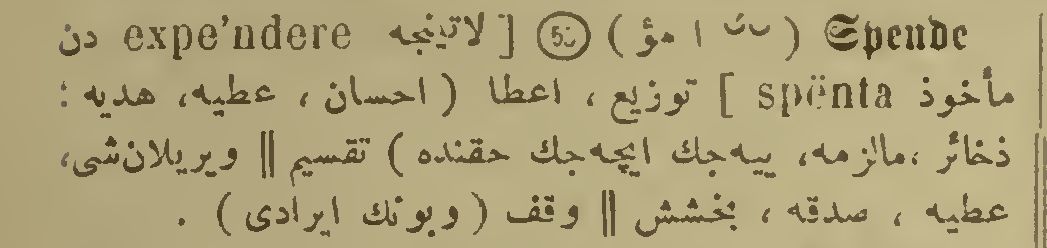 Spende ( امؤ ) [ لاتينجه expe'ndere دن
مأخوذ spënta ] توزيع ، اعطا ( احسان ، عطيه، هديه :
ذخائر ،مالزمه، ييه‌جك ايچه‌جك حقنده ) تقسيم || ويريلان‌شى،
عطيه ، صدقه ، بخشش || وقف ( وبونك ايرادى ) .